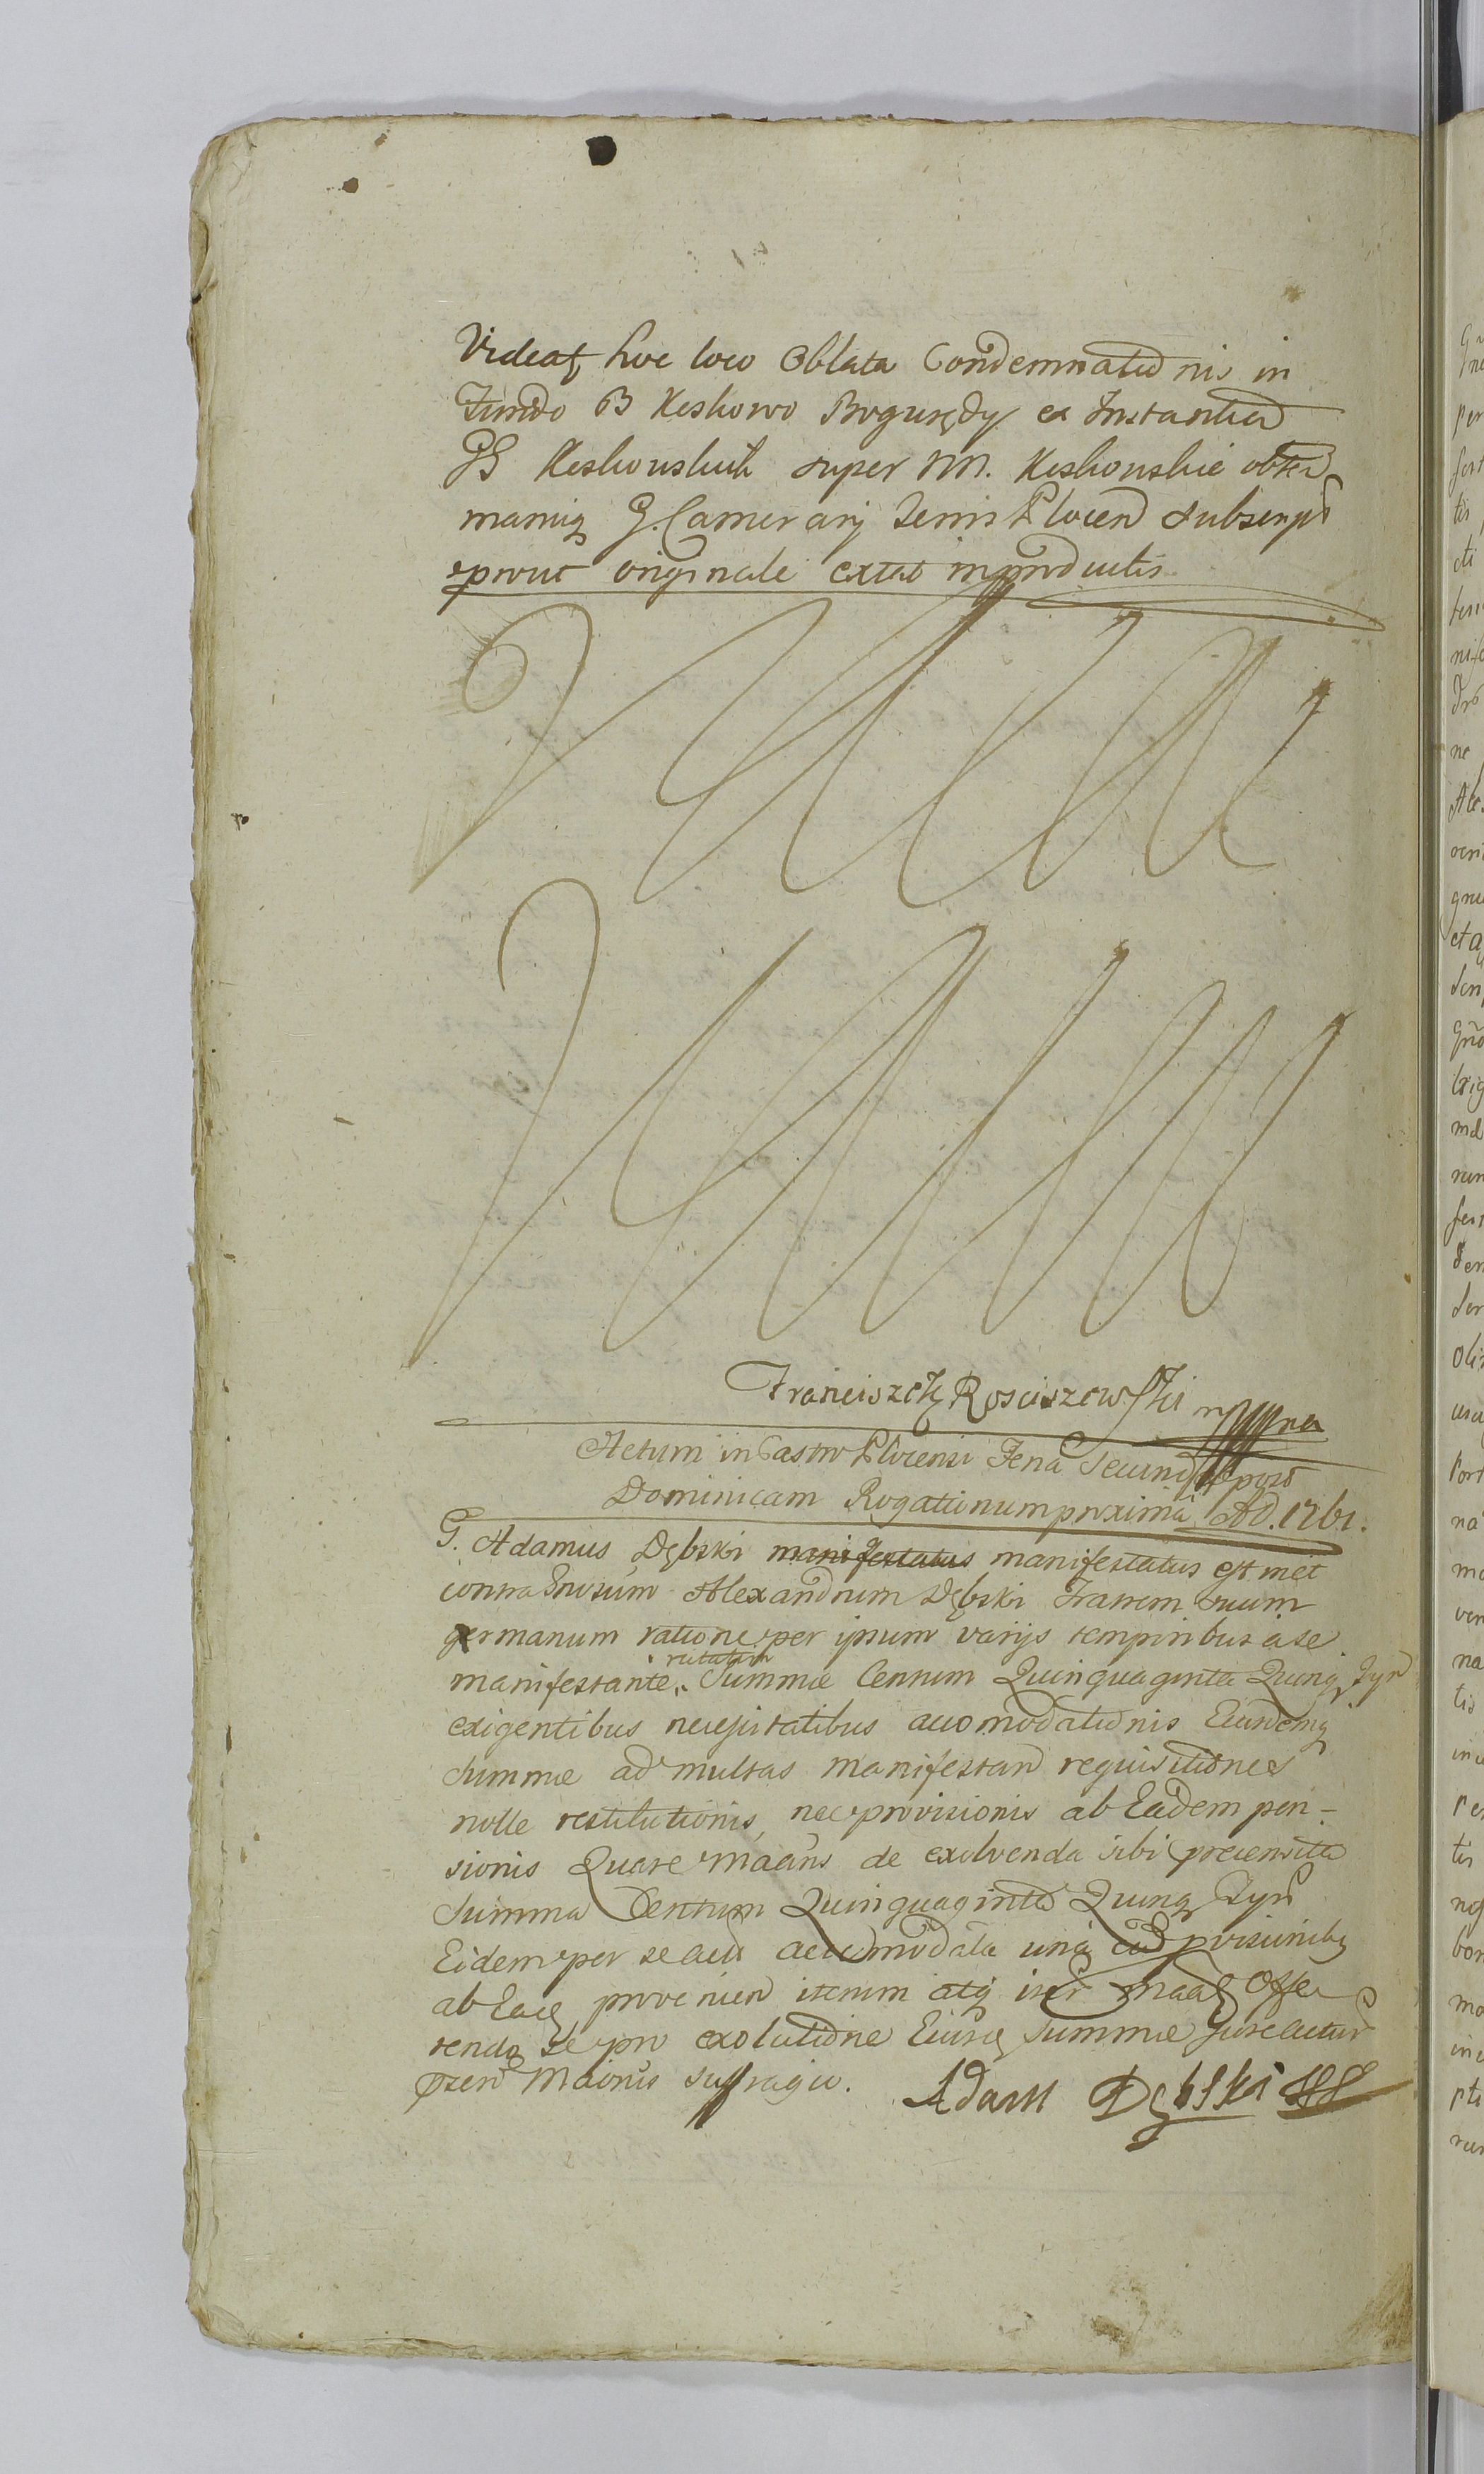 Videat hoc loco Oblata Condemnationis in
Fundo B Keskowo Bogurzędy ex Instantia
GG Keskowskich super MM. Keskowskie obten
manuq G. Camerarij Terris Plocen Subscript
prout originale extat in productis
Franciszek Rosciszewski
Actum in Castro Plocensi Feria Secunda post
Dominicam Rogationum proxima AD. 1761.
G. Adamus Dębski manifestatus manifestatus est met
contra Gnosum Alexandrum Dębski Fratrem suum
germanum ratione per ipsum varijs temporibus a se
manifestante Summæ Centum Quinquaginta Quinq Tynf
exigentibus necessitatibus accomodationis Eiusdemq
Summæ ad multas manifestan requisitiones
nolle restitutionis, nec provisionis ab Eadem pen-
sionis Quare maans de exolvenda sibi precensita
Summa Centum Quinquaginta Quinq Tynf
Eidem per se accomodata una cum provisionibq
ab Eaq provenien iterum atq iter maaq Offe
rendo se pro exolutione Eiusq Summæ Jure actur
pren Maonis suffragio. Adam Dębski